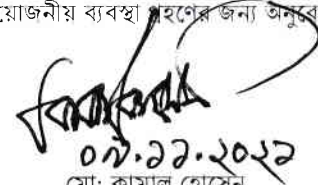 য়োজনীয় ব্যবস্থা গ্রহণের জন্য অনুরো
০৮.১১.২০২১
মো: কামাল হোসেন